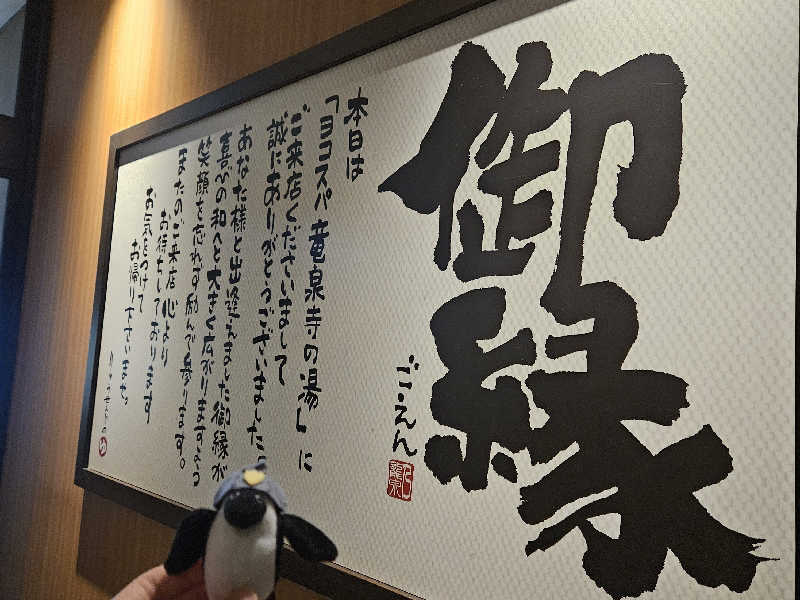 御縁
ご・えん
本日は
「ヨコスパ竜泉寺の湯」に
ご来店くださいまして
誠にありがとうございました。
あなた様と出逢えました御縁が
喜びの和へと大きく広がりますよう
笑顔を忘れず励んで参ります。
またのご来店心より
お待ちしております
お気をつけて
お帰り下さいませ。